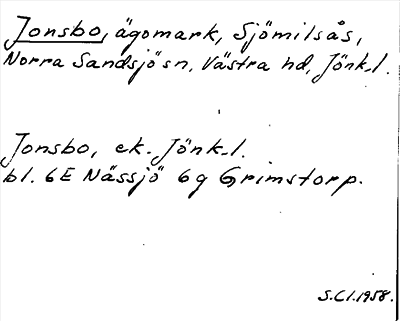 Jonsbo, ägomark, Sjömilsås,
Norra Sandsjö sn, Västra hd, Jönk.l.
Jonsbo, ek. Jönk.l.
bl. 6E Nässjö 6g Grimstorp.
S.Cl.1958.